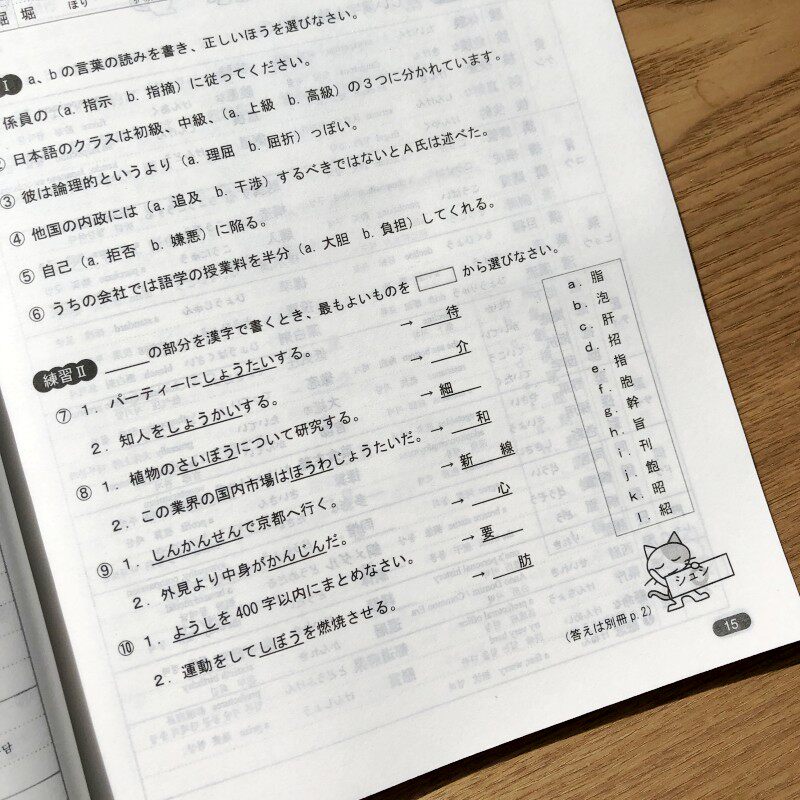 堀 ほり
Ⅰ a、bの言葉の読みを書き、正しいほうを選びなさい。
係員の（a. 指示 b. 指摘）に従ってください。
② 日本語のクラスは初級、中級、（a. 上級 b. 高級）の３つに分かれています。
③ 彼は論理的というより（a. 理屈 b. 屈折）っぽい。
④ 他国の内政には（a. 追及 b. 干渉）するべきではないとＡ氏は述べた。
⑤ 自己（a. 拒否 b. 嫌悪）に陥る。
⑥ うちの会社では語学の授業料を半分（a. 大胆 b. 負担）してくれる。
練習Ⅱ ＿＿＿の部分を漢字で書くとき、最もよいものを □ から選びなさい。
⑦ 1. パーティーにしょうたいする。 → ＿＿待
2. 知人をしょうかいする。 → ＿＿介
⑧ 1. 植物のさいぼうについて研究する。 → 細＿＿
2. この業界の国内市場はほうわじょうたいだ。 → ＿＿和
⑨ 1. しんかんせんで京都へ行く。 → 新＿＿線
2. 外見より中身がかんじんだ。 → ＿＿心
⑩ 1. ようしを400字以内にまとめなさい。 → 要＿＿
2. 運動をしてしぼうを燃焼させる。 → ＿＿肪
a. 脂
b. 泡
c. 肝
d. 招
e. 指
f. 胞
g. 幹
h. 旨
i. 刊
j. 飽
k. 昭
l. 紹
シュシ
（答えは別冊p.2）
15